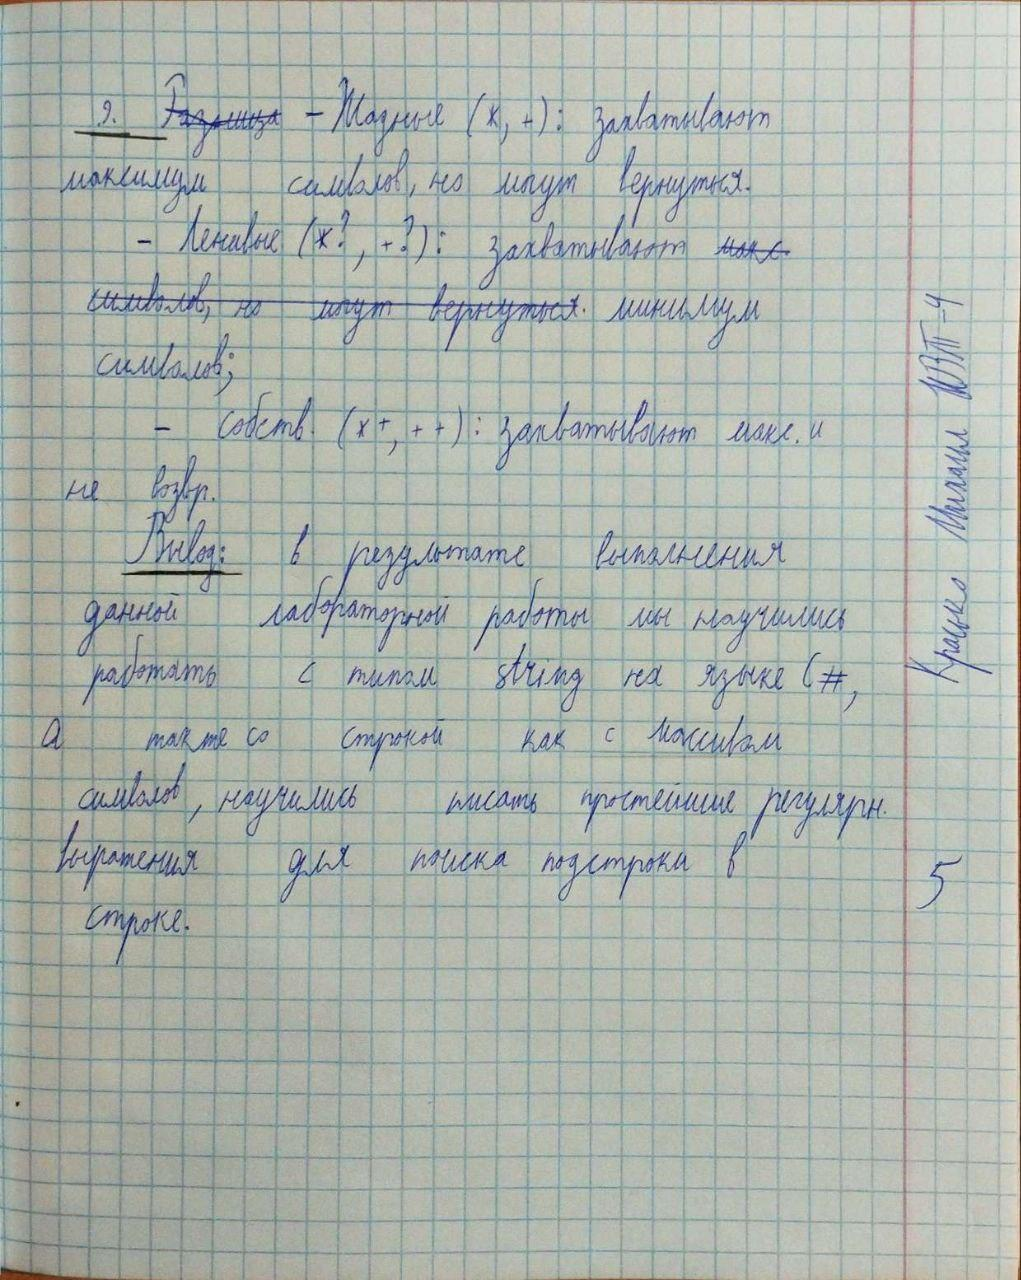 9. Разница - Жадные (*, +): захватывают
максимум символов, но могут вернуться.
- Ленивые (*?, +?): захватывают макс.
символов, но могут вернуться. минимум
символов;
- собств. (*+, ++): захватывают макс. и
не возвр.
Вывод: в результате выполнения
данной лабораторной работы мы научились
работать с типом string на языке C#,
а также со строкой как с массивом
символов, научились писать простейшие регулярн.
выражения для поиска подстроки в
строке.
Михаил ИВТ-4
5